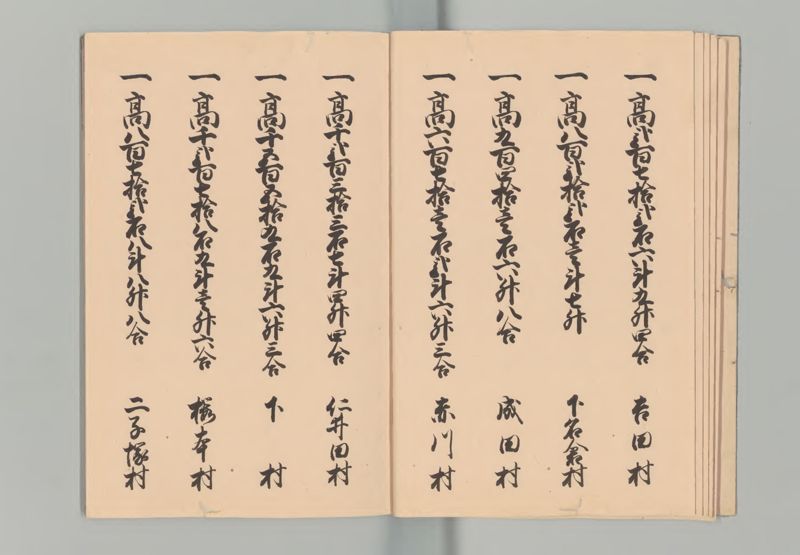 一高弐百七拾弐石六斗九升四合 吉田村
一高八百弐拾弐石壱斗七升 下名倉村
一高九百四拾壱石六升八合 成田村
一高六百七拾壱石弐斗六升三合 赤川村
一高千弐百三拾三石七斗四升四合 仁井田村
一高千五百五拾九石九斗六升三合 下村
一高千弐百七拾八石九斗壱升六合 桜本村
一高八百七拾弐石八斗八升八合 二子塚村